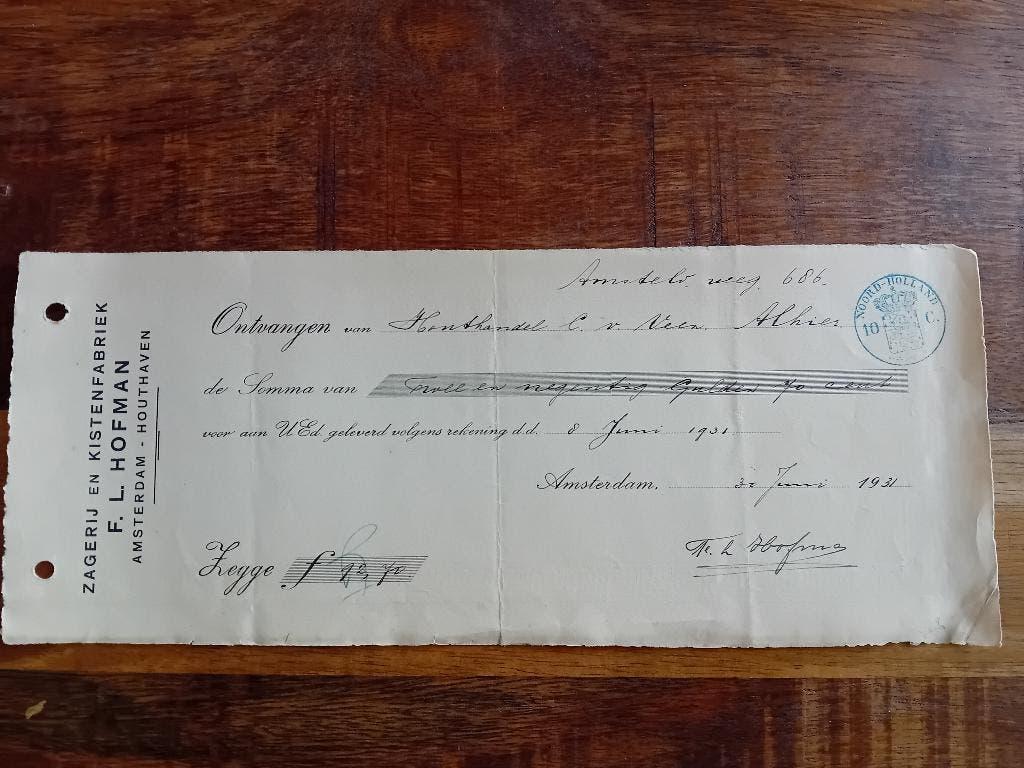 ZAGERIJ EN KISTENFABRIEK
F. L. HOFMAN
AMSTERDAM - HOUTHAVEN
686
NOORD-HOLLAND
10 C.
Ontvangen van Houthandel C. v. Veen Alhier
de Somma van negentig Gulden 70 cent
voor aan UEd. geleverd volgens rekening d.d. 8 Juni 1931
Amsterdam, Juni 1931
Zegge f 70